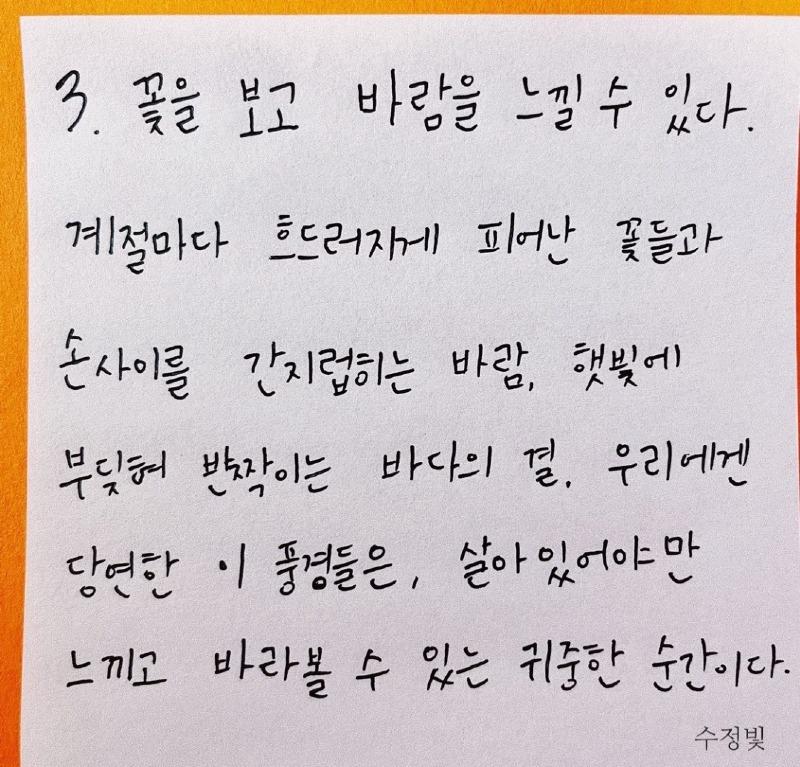 3. 꽃을 보고 바람을 느낄 수 있다.
계절마다 흐드러지게 피어난 꽃들과
손사이를 간지럽히는 바람, 햇빛에
부딪혀 반짝이는 바다의 결, 우리에겐
당연한 이 풍경들은, 살아있어야만
느끼고 바라볼 수 있는 귀중한 순간이다.
수정빛